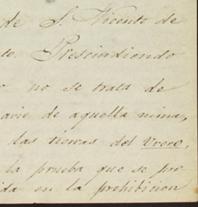 de S. Vicente de
te. Prescindiendo
o no se trata de
arie de aquella mina,
las tierras del
la prueba que se pro
ida en la prohibicion